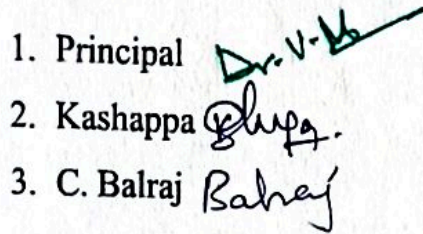 1. Principal Dr. V-
2. Kashappa
3. C. Balraj Balraj